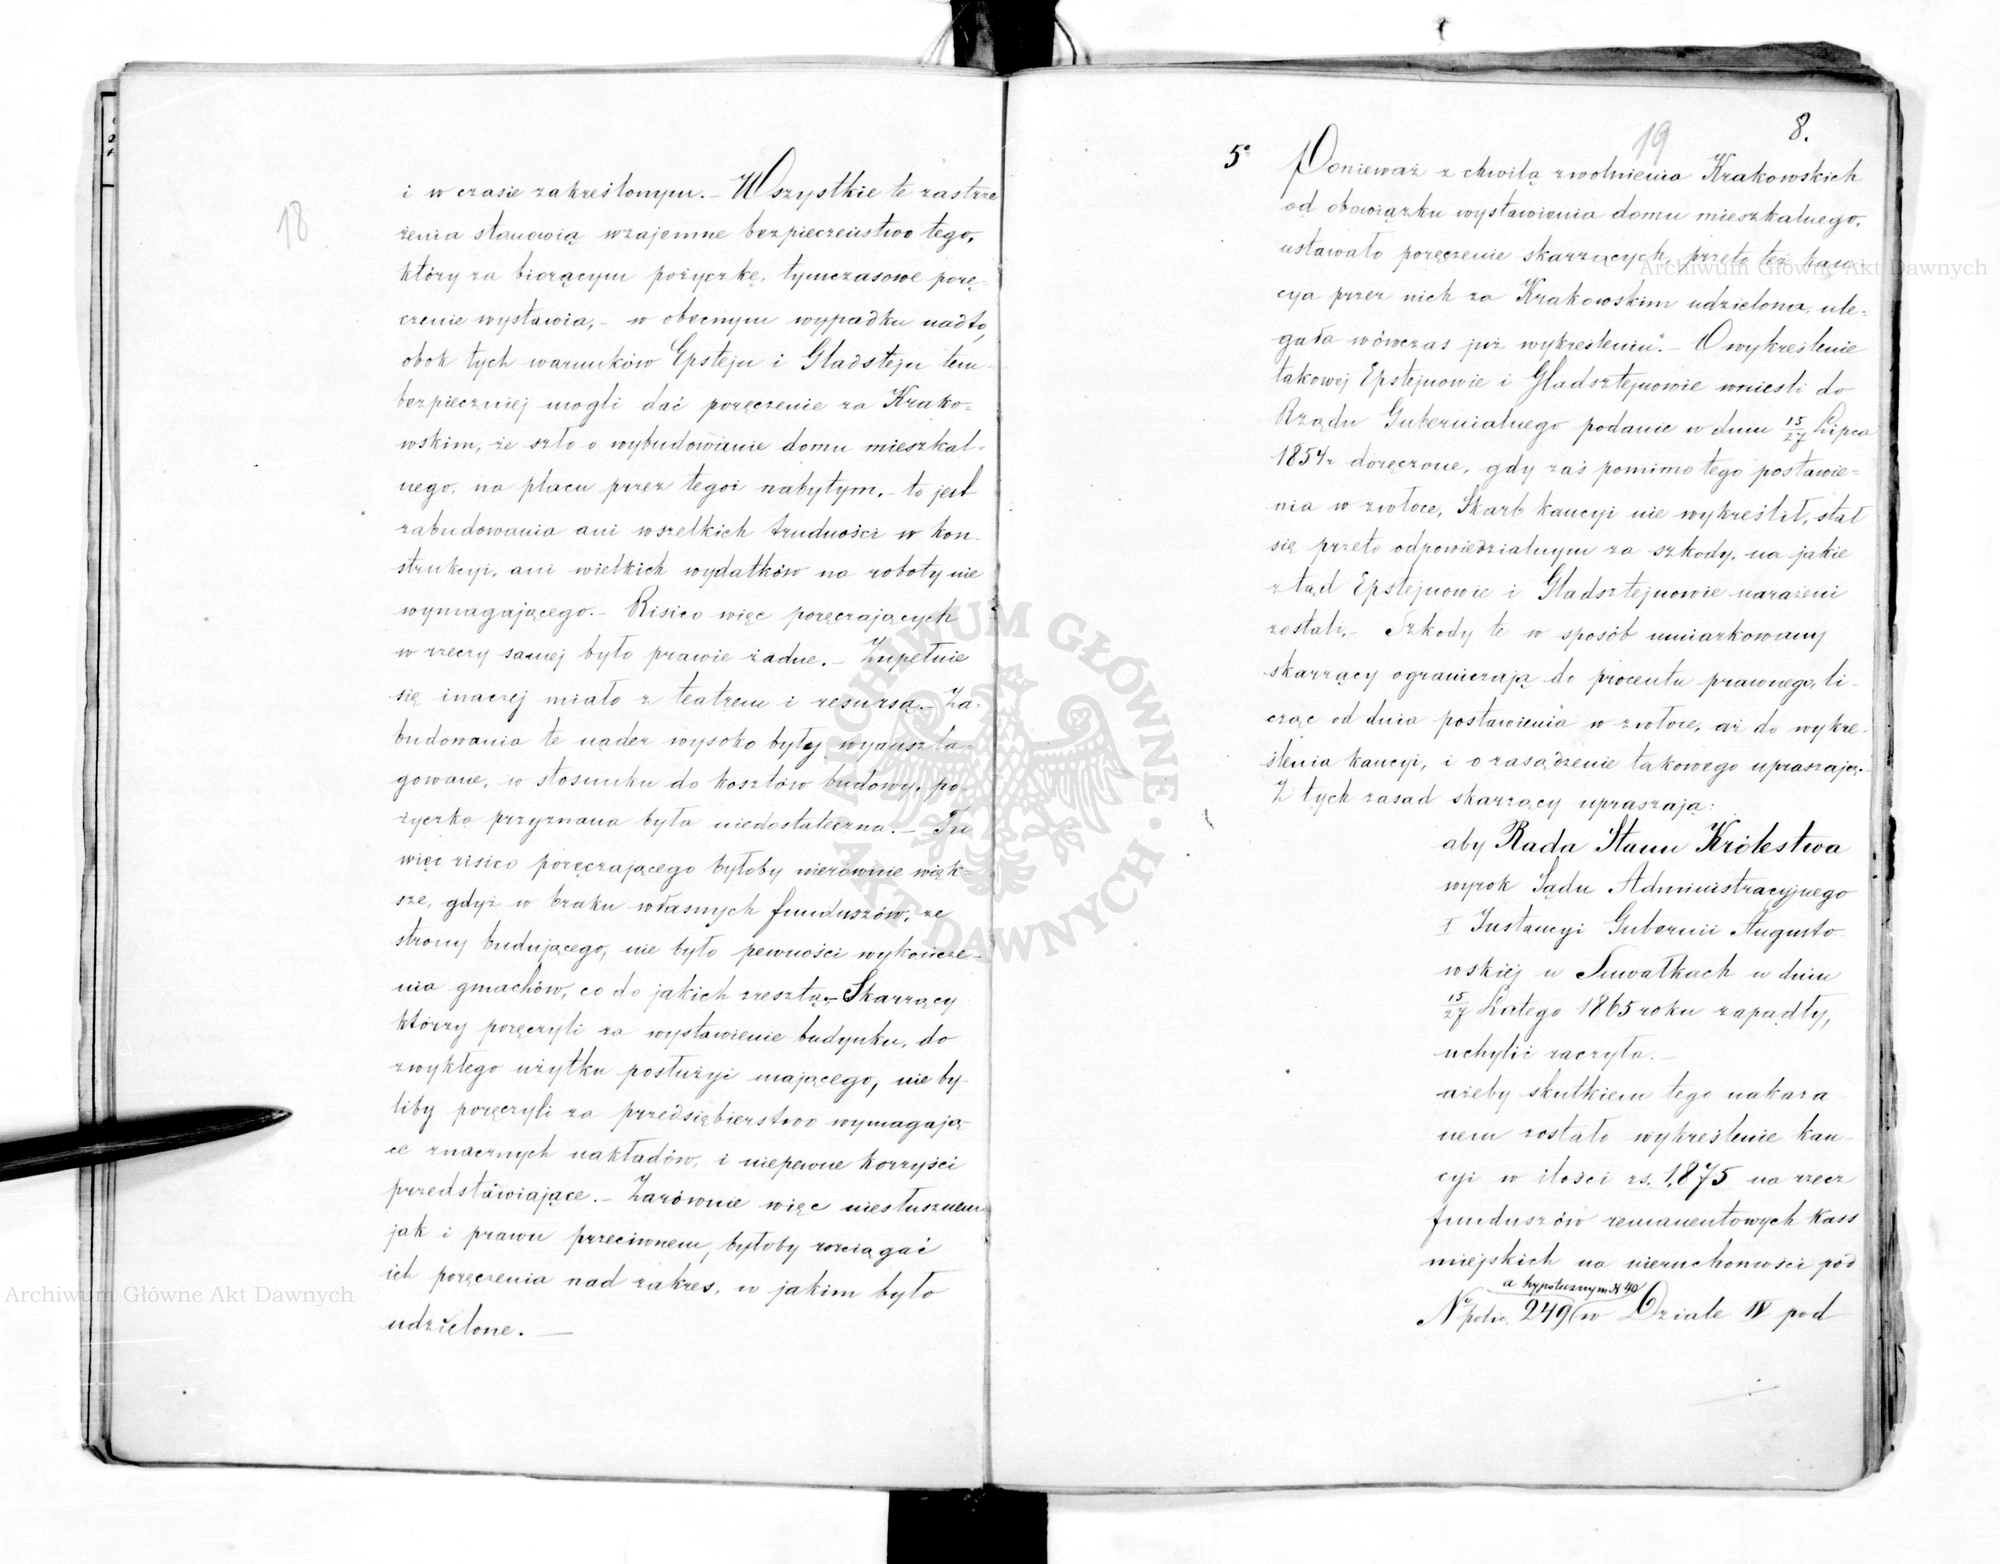 18
i w czasie zakreślonym. — Wszystkie te zastrze
żenia stanowią wzajemne bezpieczeństwo tego,
który za biorącym pożyczkę, tymczasowe porę-
czenie wystawia, – w obecnym wypadku nadto,
obok tych warunków Epstejn i Gladstejn tem-
bezpieczniej mogli dać poręczenie za Krako-
wskim, że szło o wybudowanie domu mieszkal-
nego, na placu przez tegoż nabytym, – to jest
zabudowania ani wszelkich trudności w kon-
strukcyi, ani wielkich wydatków na roboty nie
wymagającego. – Risico więc poręczających
w rzeczy samej było prawie żadne. – Zupełnie
się inaczej miało z teatrem i resursą. – Za-
budowania te nader wysoko były wyanszla-
gowane, w stosunku do kosztów budowy, po-
życzka przyznana była niedostateczna. – Tu
więc risico poręczającego byłoby nierównie więk-
sze, gdyż w braku własnych funduszów, ze
strony budującego, nie było pewności wykończe-
nia gmachów, co do jakich zresztą – Skarzący
którzy poręczyli za wystawienie budynku, do
zwykłego użytku posłużyć mającego, nie by-
liby poręczyli za przedsiębierstwo wymagają-
ce znacznych nakładów, i niepewne korzyści
przedstawiające. – Zarównie więc niesłusznem
jak i prawu przeciwnem, byłoby rozciągać
ich poręczenia nad zakres, w jakim było
udzielone. —
19
8.
5° Ponieważ z chwilą zwolnienia Krakowskich
od obowiązku wystawienia domu mieszkalnego,
ustawało poręczenie skarzących, przeto też kau-
cya przez nich za Krakowskim udzielona, ule-
gała wówczas już wykreśleniu. – O wykreślenie
takowej Epstejnowie i Gladsztejnowie wnieśli do
Rządu Gubernialnego podanie w dniu 15/27 Lipca
1854 r doręczone, gdy zaś pomimo tego postawie-
nia w zwłoce, Skarb kaucyi nie wykreślił, stał
się przeto odpowiedzialnym za szkody, na jakie
ztąd Epstejnowie i Gladsztejnowie narażeni
zostali. – Szkody te w sposób umiarkowany
skarzący ograniczają do procentu prawnego, li-
cząc od dnia postawienia w zwłoce, aż do wykre-
ślenia kaucyi, i o zasądzenie takowego upraszają. –
Z tych zasad skarzący upraszają:
aby Rada Stanu Królestwa
wyrok Sądu Administracyjnego
I Instancyi Gubernii Augusto-
wskiej w Suwałkach w dniu
15/27 Lutego 1865 roku zapadły,
uchylić raczyła. –
ażeby skutkiem tego nakaza-
nem zostało wykreślenie kau-
cyi w ilości rs. 1,875 na rzecz
funduszów remanentowych kass
miejskich na nieruchomości pod
a hypotecznym N 40
No polic. 249 (w Dziale IV pod
Archiwum Główne Akt Dawnych
Archiwum Główne Akt Dawnych
ARCHIWUM GŁÓWNE · AKT DAWNYCH ·